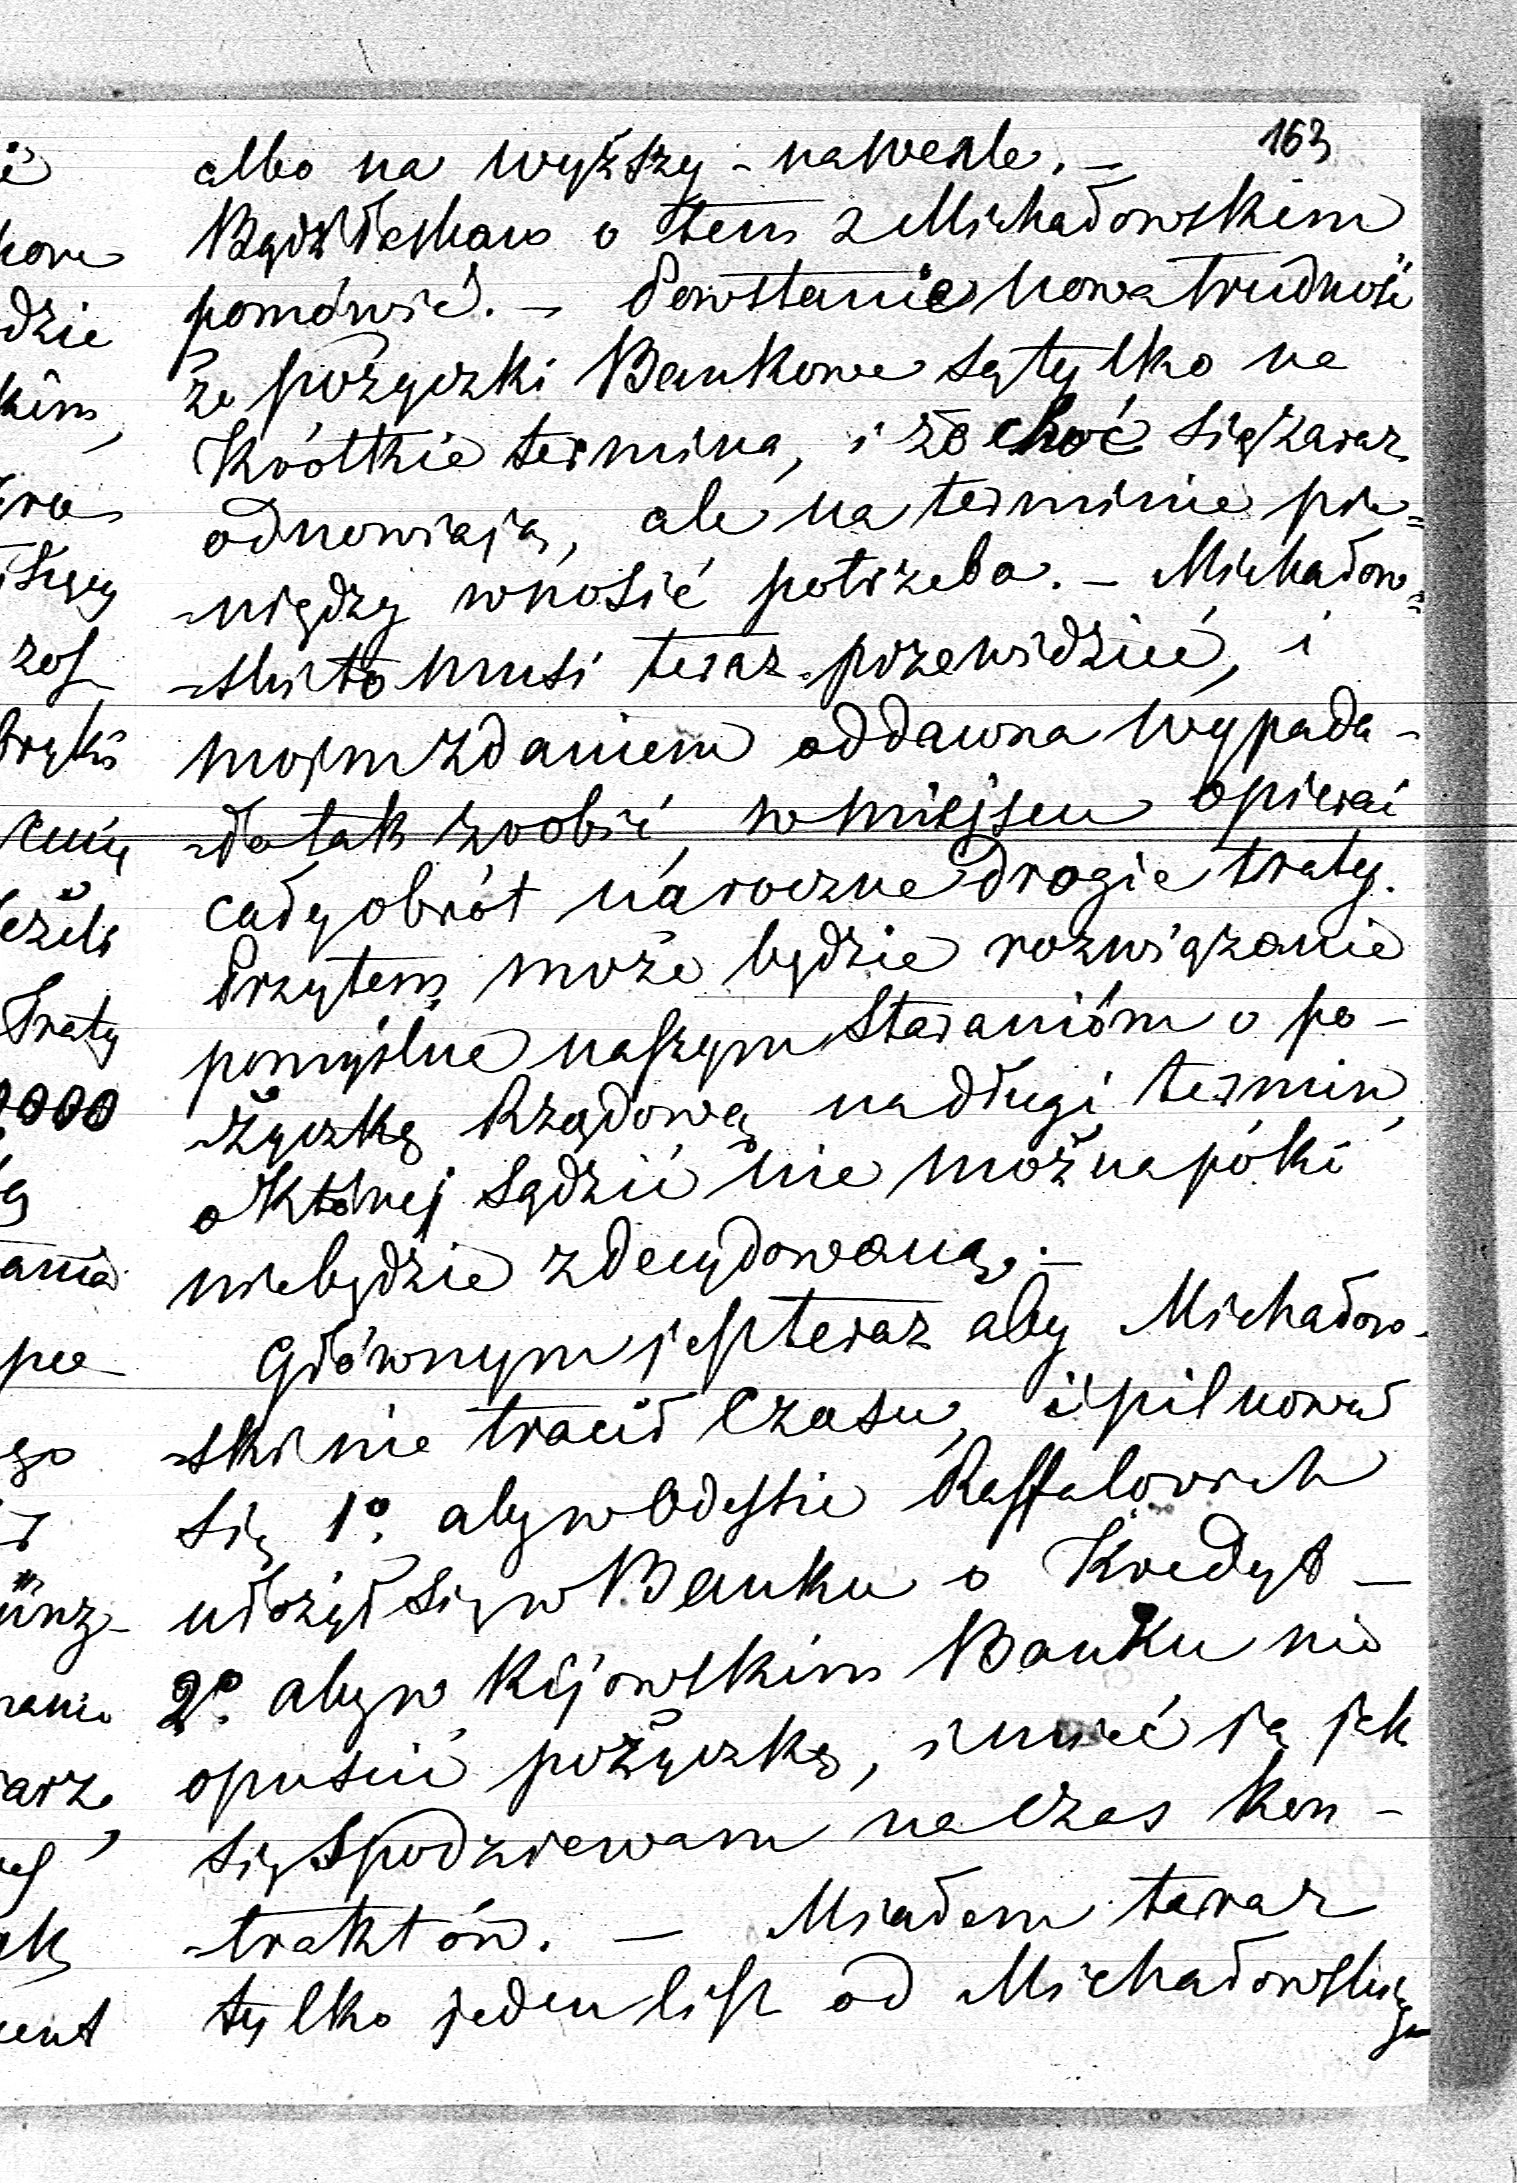 163
albo na wyższy - na weksle. -
Bądź łaskaw o tem z Michałowskim
pomówić. - Powstanie nowa trudność
że pożyczki Bankowe są tylko na
Krótkie termina, i że choć się zaraz
odnowiają, ale na terminie pie=
-niędzy wnosić potrzeba. - Michałow=
-ski to musi teraz przewidzieć, i
mojem zdaniem oddawna wypada-
-ło tak zrobić, w miejscu opierać
cały obrót na roczne drogie traty.
Przytem może będzie rozwiązanie
pomyślne naszym staranióm o po-
-życzkę Rządową na długi termin,
o której sądzić nie można póki
niebędzie zdecydowaną. -
Głównym jest teraz aby Michałow-
-ski nie tracił czasu, i pilnował
się 1o. aby w Odessie Raffalowich
ułożył się w Banku o Kredyt -
2o. aby w Kijowskim Banku nie
opuścić pożyczkę, i mieć ją jak
się spodziewam na czas kon-
-traktów. - Miałem teraz
tylko jeden list od Michałowskiego
dzie
kim,
Traty
000
ania
ego